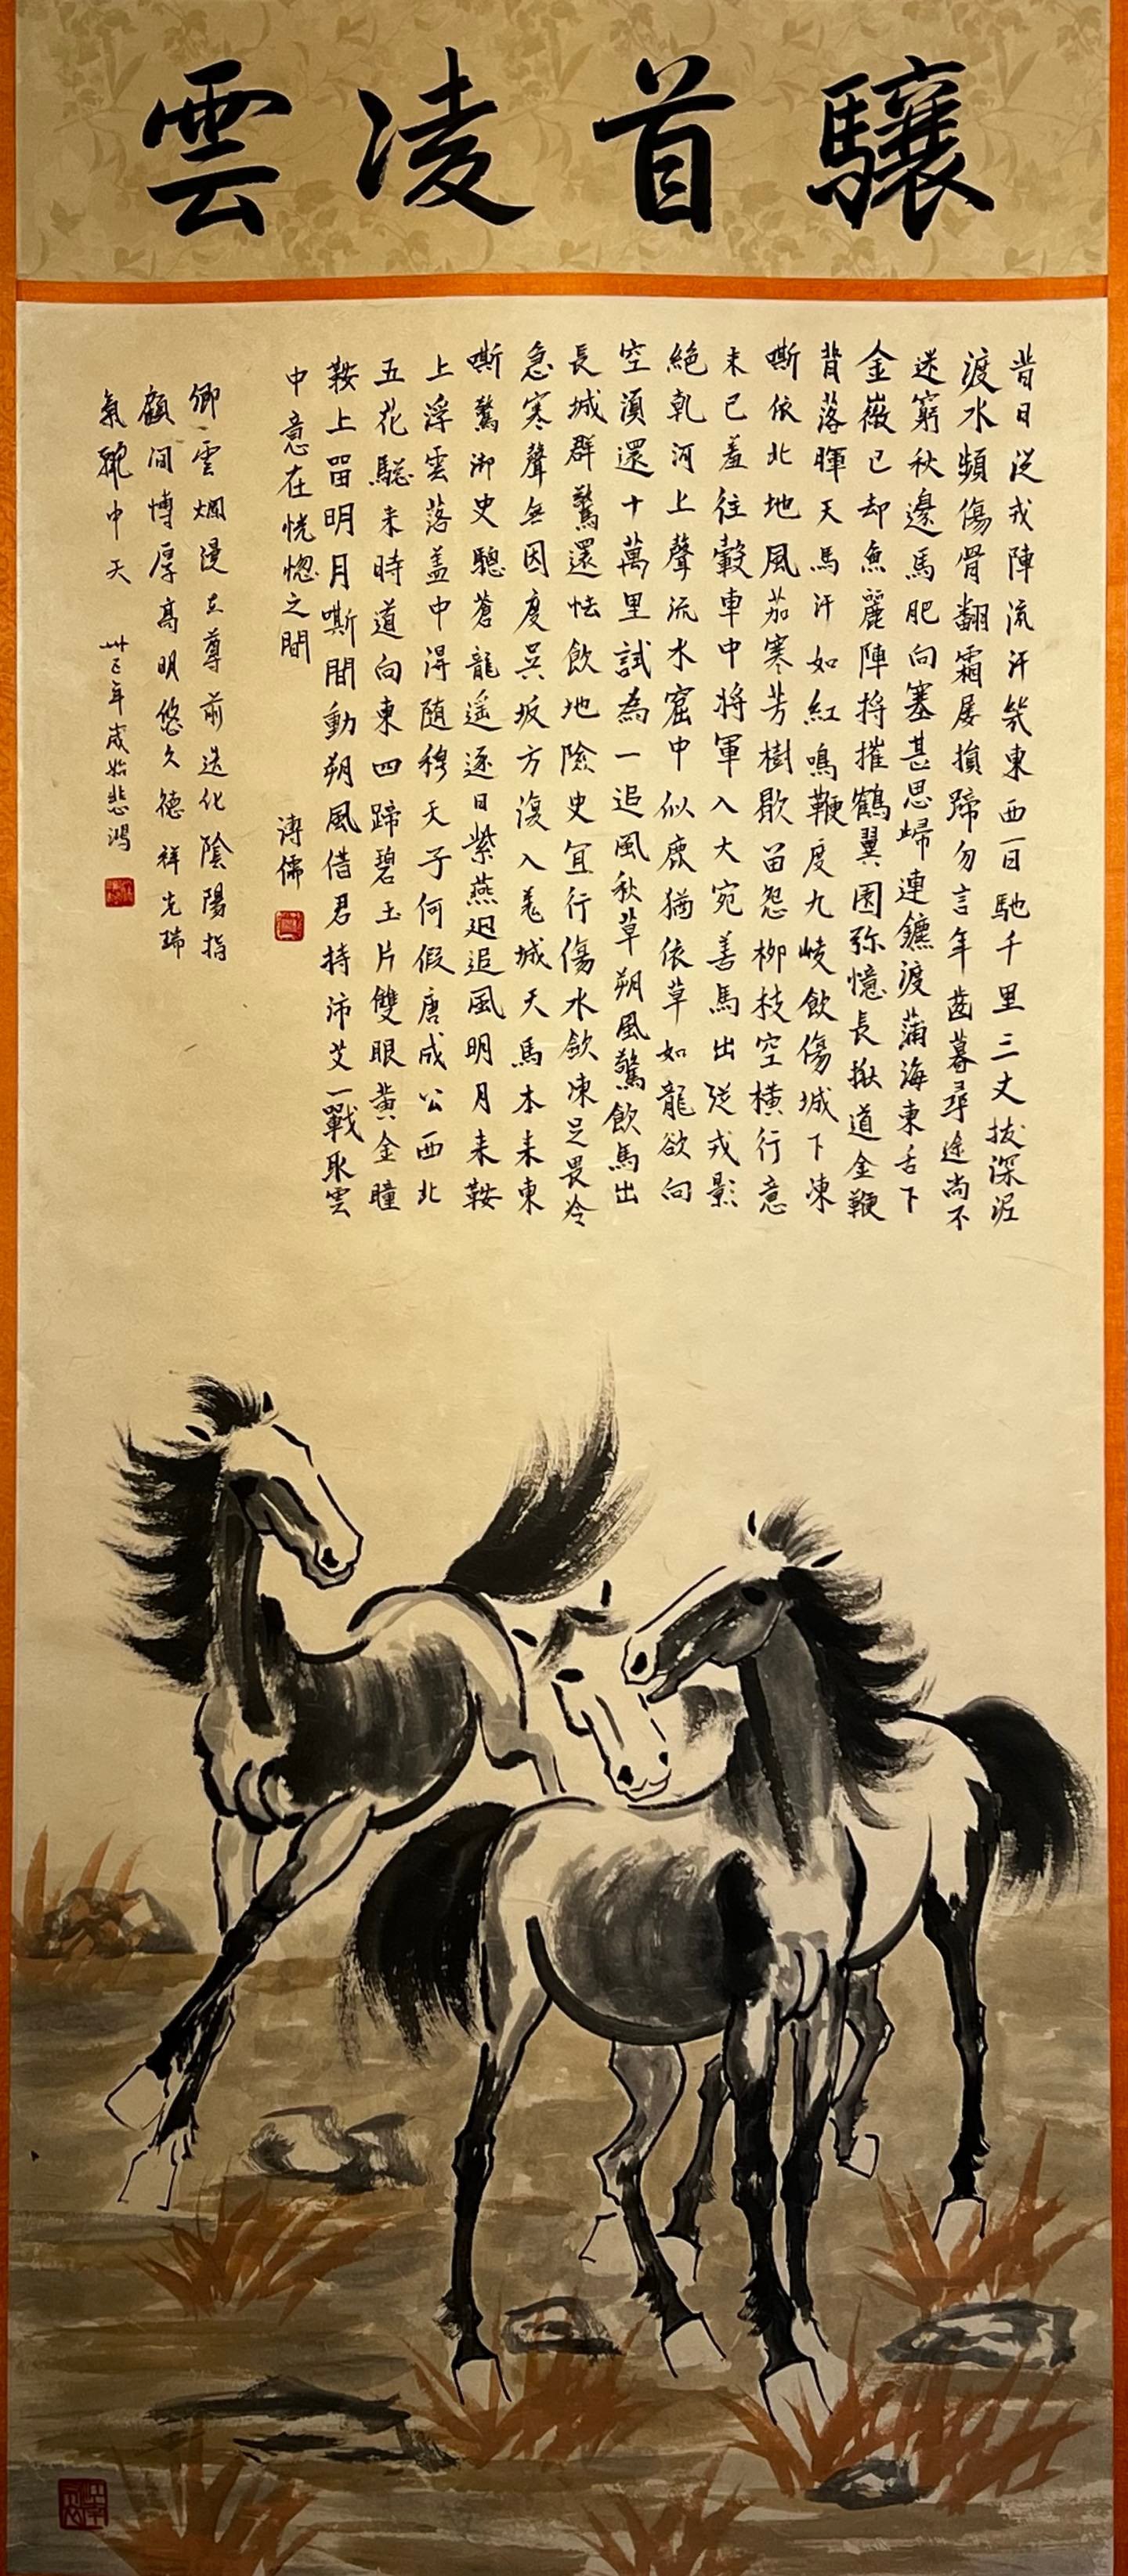 驤首凌雲
昔日從戎陣流汗幾東西一日馳千里三丈拔深泥
渡水頻傷骨翻霜屡損蹄勿言年齒暮尋途尚不
迷窮秋邊馬肥向塞甚思歸連鑣渡蒲海東舌下
金微已却魚麗陣將摧鶴翼圍弥憶長楸道金鞭
背落暉天馬汗如紅鳴鞭度九崚飲傷城下凍
嘶依北地風茄寒芳樹歇笛怨柳枝空橫行意
未已羞往轂車中將軍入大宛善馬出從戎影
絕乾河上聲流水窟中似鹿猶依草如龍欲向
空須還十萬里試為一追風秋草朔風驚飲馬出
長城群驚還怯飲地險史宜行傷水飲凍足畏冷
急寒聲無因度吳坂方復入羌城天馬本來東
嘶驚御史驄蒼龍遥逐日紫燕迥追風明月來鞍
上浮雲落盖中得隨穆天子何假唐成公西北
五花驄來時道向東四蹄碧玉片雙眼黃金瞳
鞍上留明月嘶間動朔風借君持沛艾一戰取雲
中意在恍惚之間
溥儒
卿雲爛漫立尊前迭化陰陽指
顧間博厚高明悠久德祥光瑞
氣靄中天
卅五年歲始悲鴻